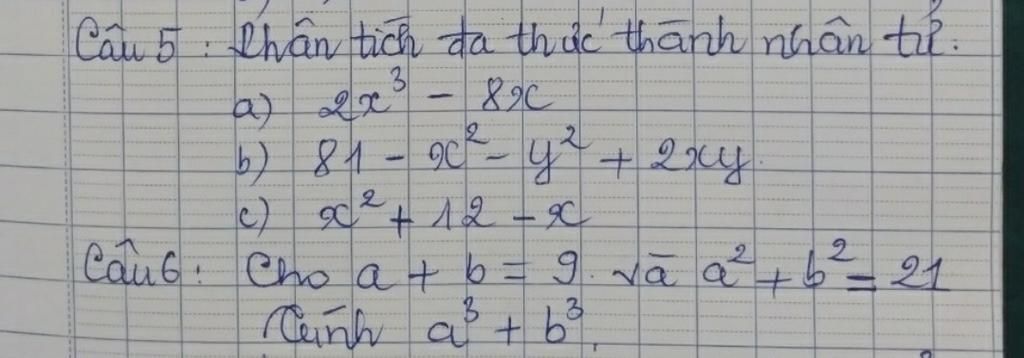 Câu 5 : Phân tích đa thức thành nhân tử.
a) 2x³ - 8x
b) 81 - x² - y² + 2xy.
c) x² + 12 - x
Câu 6 : Cho a + b = 9. và a² + b² = 21
Tính a³ + b³.